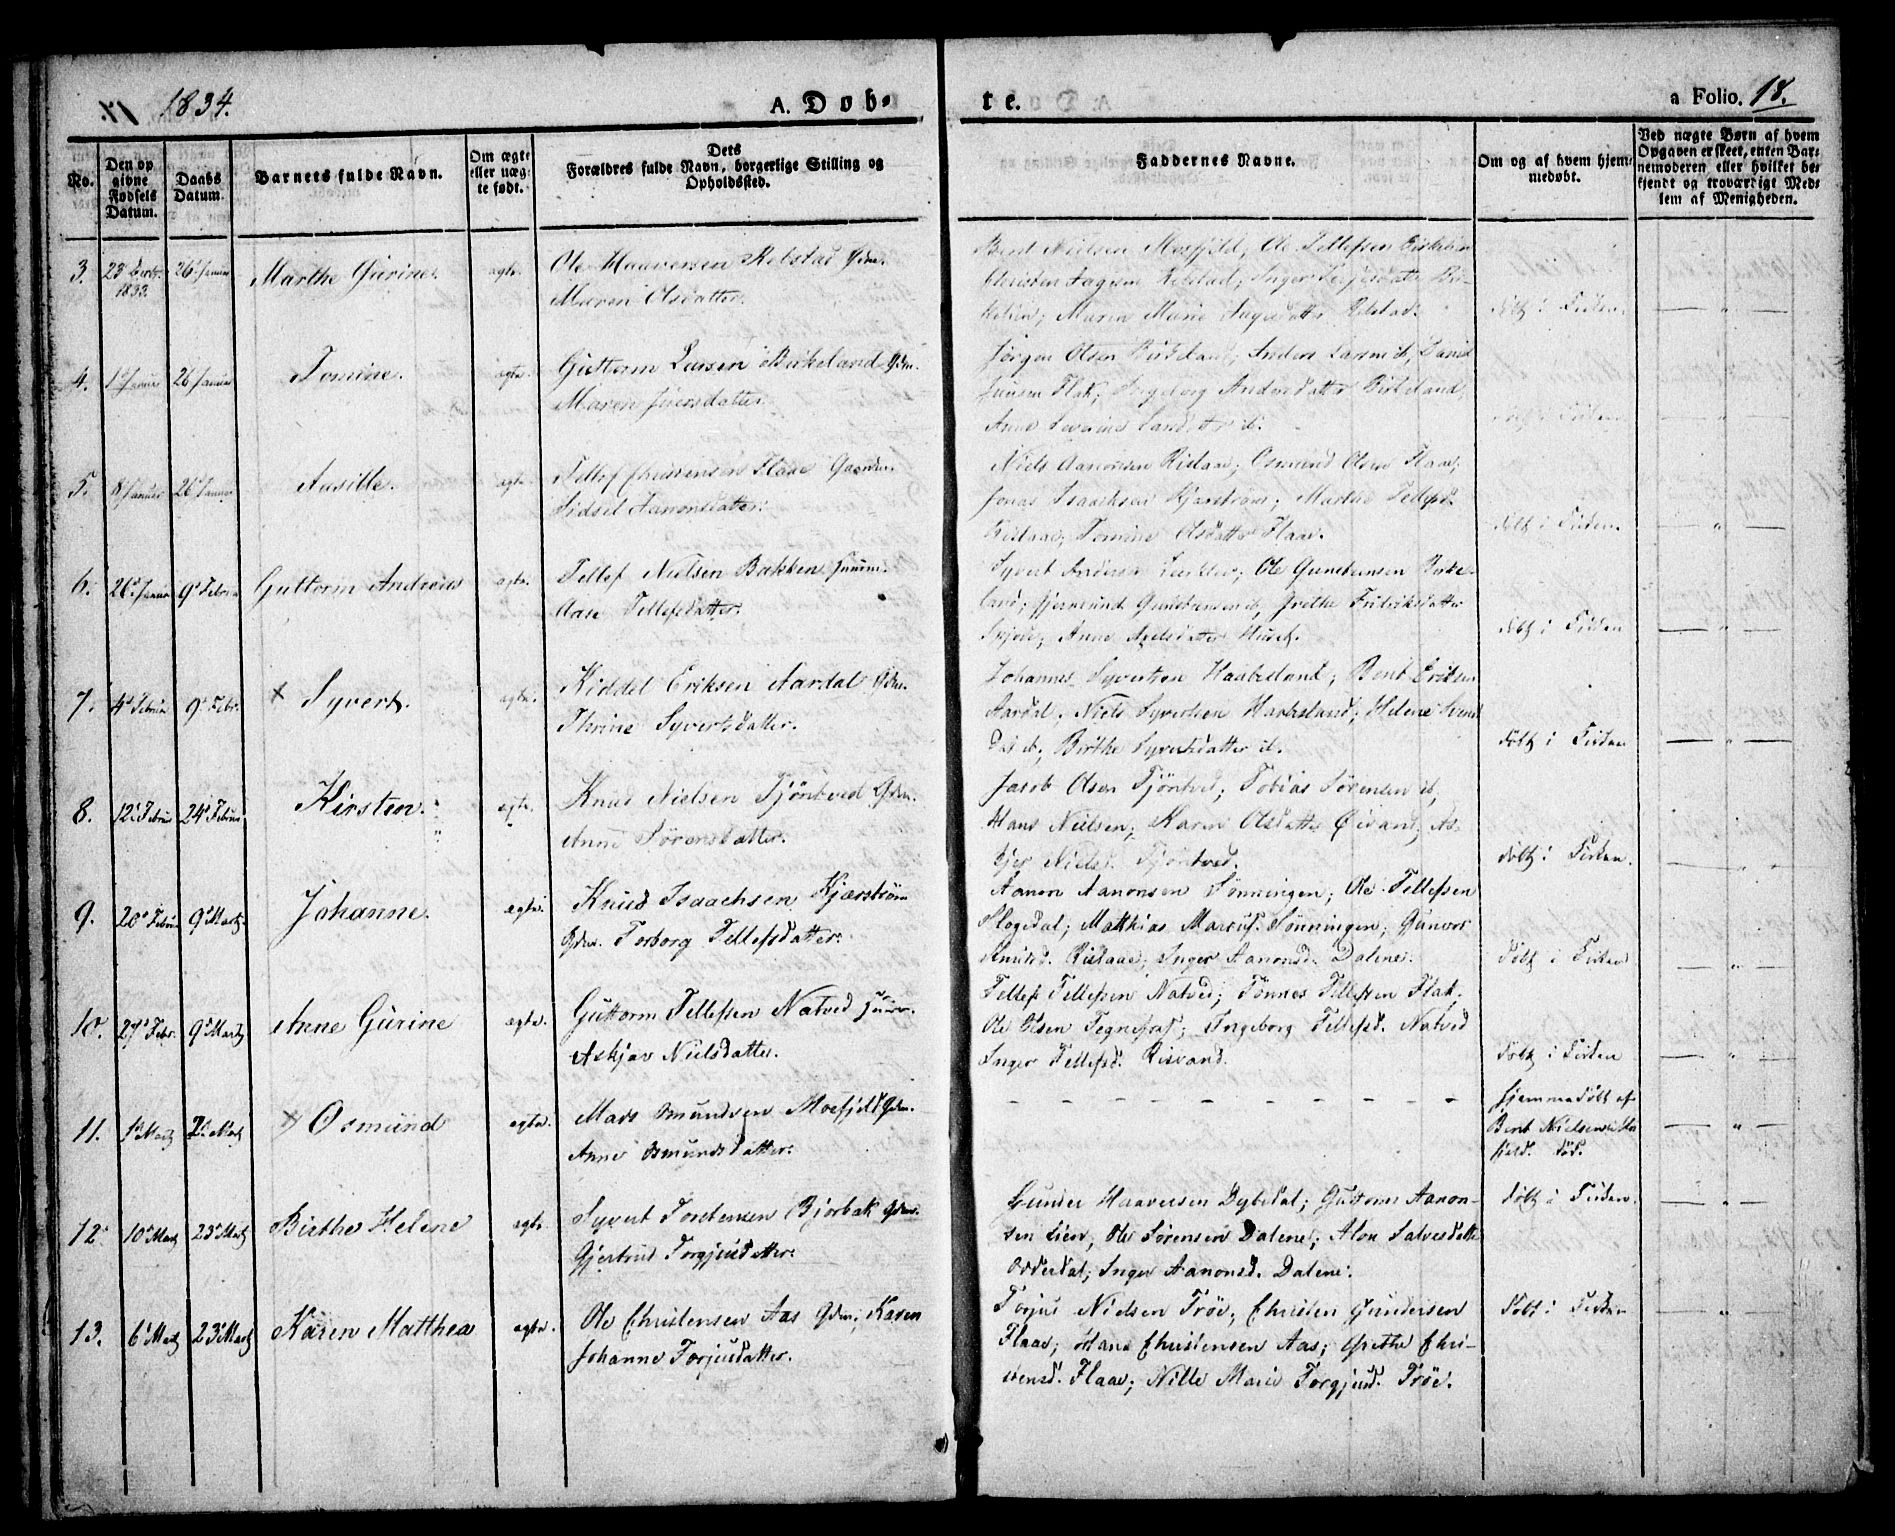 1834.
A. Døb-
te.
a Folio. 18.
No.
Den op
givne
Fødsels
Datum.
Daabs
Datum.
Barnets fulde Navn.
Om ægte
eller uæg-
te født.
Dets
Forældres fulde Navn, borgerlige Stilling og
Opholdssted.
Faddernes Navne.
Om og af hvem hjem-
medøbt.
Ved uægte Børn af hvem
Opgaven er skeet, enten Bar-
nemoderen eller hvilket be-
kjendt og troværdigt Med-
lem af Menigheden.
3.
1833.
26 Januar
Marthe Gurine.
ægte.
Ole Haaversen Rebstad Gdm.
Maren Olsdatter.
Bent Nielsen Moefjeld; Ole Tellefsen Birkelien
Christen Aagesen Rebstad; Inger
Maren Marie Aagesdatter Rebstad.
døbt i Kirken.
4.
1 Januar
26 Januar
Tomine.
ægte.
Guttorm Larsen Birkeland Gdm.
Maren Juersdatter.
Jørgen Olsen Birkeland; Anders Larsen ib, Daniel
Juusen Flak; Ingeborg Andersdatter Birkeland,
Anne Severine
døbt i Kirken
5.
8 Januar
26 Januar
Aasille.
ægte.
Tellef Christensen Flaae Gaardm.
Sidsel Aanonsdatter.
Niels Aanonsen Rislaae; Osmund Olsen Flaae,
Jonas Isaachsen Kjærstrøm; Marthe Tellefsd.
Rislaae; Tomine Olsdatter Flaae.
døbt i Kirken.
6.
26 Januar
9 Februar
Guttorm Andreas
ægte.
Tellef Nielsen Bakken Huusm.
Aase Tellefsdatter.
Syvert Ole Gundersen Birke-
land; Gjermund Gundersen ib, Grethe Fridriksdatter
Anne Nielsdatter
døbt i Kirken
7.
4 Februar
9 Febr.
× Syvert.
ægte.
Kiddel Eriksen Aardal Gdm.
Thrine Syvertsdatter.
Johannes Syvertsen Haabesland; Bent Eriksen
Aardal, Niels Syvertsen Haabesland; Helene
ib, Birthe Syvertsdatter ib.
døbt i Kirken
8.
12 Februar
24 Februar
Kirsten.
ægte.
Knud Nielsen Tjöntved Gdm.
Anne Sörensdatter.
Jacob Olsen Tjöntved; Tobias Sörensen ib,
Hans Nielsen; Karen Olsdatter
Nielsd. Tjöntved.
døbt i Kirken.
9.
20 Februar
9 Martz
Johanne.
ægte.
Knud Isaachsen Kjærström
Gdm. Torborg Tellefsdatter.
Aanon Aanonsen Sönningen; Ole Tellefsen
Slogedal; Matthias Marcus. Sönningen; Gunvor
Knudsd. Rislaae; Inger Aanonsd. Dalene.
døbt i Kirken
10.
27 Febr.
9 Martz
Anne Gurine
ægte.
Guttorm Tellefsen Natved Huusm.
Askjær Nielsdatter.
Tellef Tellefsen Natved; Tönnes Tellefsen Flak,
Ole Olsen Tegnefos; Ingeborg Tellefsd. Natved
Inger Tellefsd. Risvand.
døbt i Kirken
11.
1 Martz
2 Martz
× Osmund
ægte.
Mads Osmundsen Moefjeld Gdm.
Anne Osmundsdatter.
Hjemmedøbt af
Bent Nielsen Mo
fjeld. død.
12.
10 Martz
23 Martz
Birthe Helene
ægte.
Syvert Torstensen Bjorbak Gdm.
Gjertrud Torgjusdatter.
Gunder Haaversen Dybedal; Guttorm Aanon-
sen Lien; Ole Sörensen Dalene; Alou Salvesdatter
Odderdal; Inger Aanonsd. Dalene.
døbt i Kirken.
13.
6 Martz
23 Martz
Karen Matthea
ægte.
Ole Christensen Aas Gdm; Karen
Johanne Torjusdatter.
Torjus Nielsen Tröe; Christen Gundersen
Flaae; Hans Christensen Aas; Grethe Chri-
stensd. Flaae; Nille Marie Torgjusd. Tröe.
døbt i Kirken